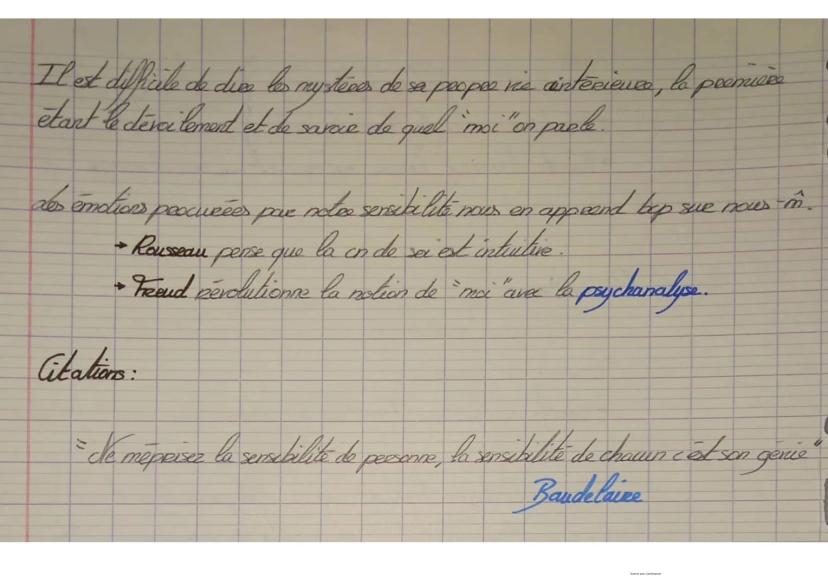 Il est difficile de dire les mystères de sa propre vie intérieure, la première
étant le dévoilement et de savoir de quel "moi" on parle.
Les émotions procurées par notre sensibilité nous en apprend bcp sur nous-m̂.
→ Rousseau pense que la cn de soi est intuitive.
→ Freud révolutionne la notion de "moi" avec la psychanalyse.
Citations :
"Ne méprisez la sensibilité de personne, la sensibilité de chacun c'est son génie"
Baudelaire